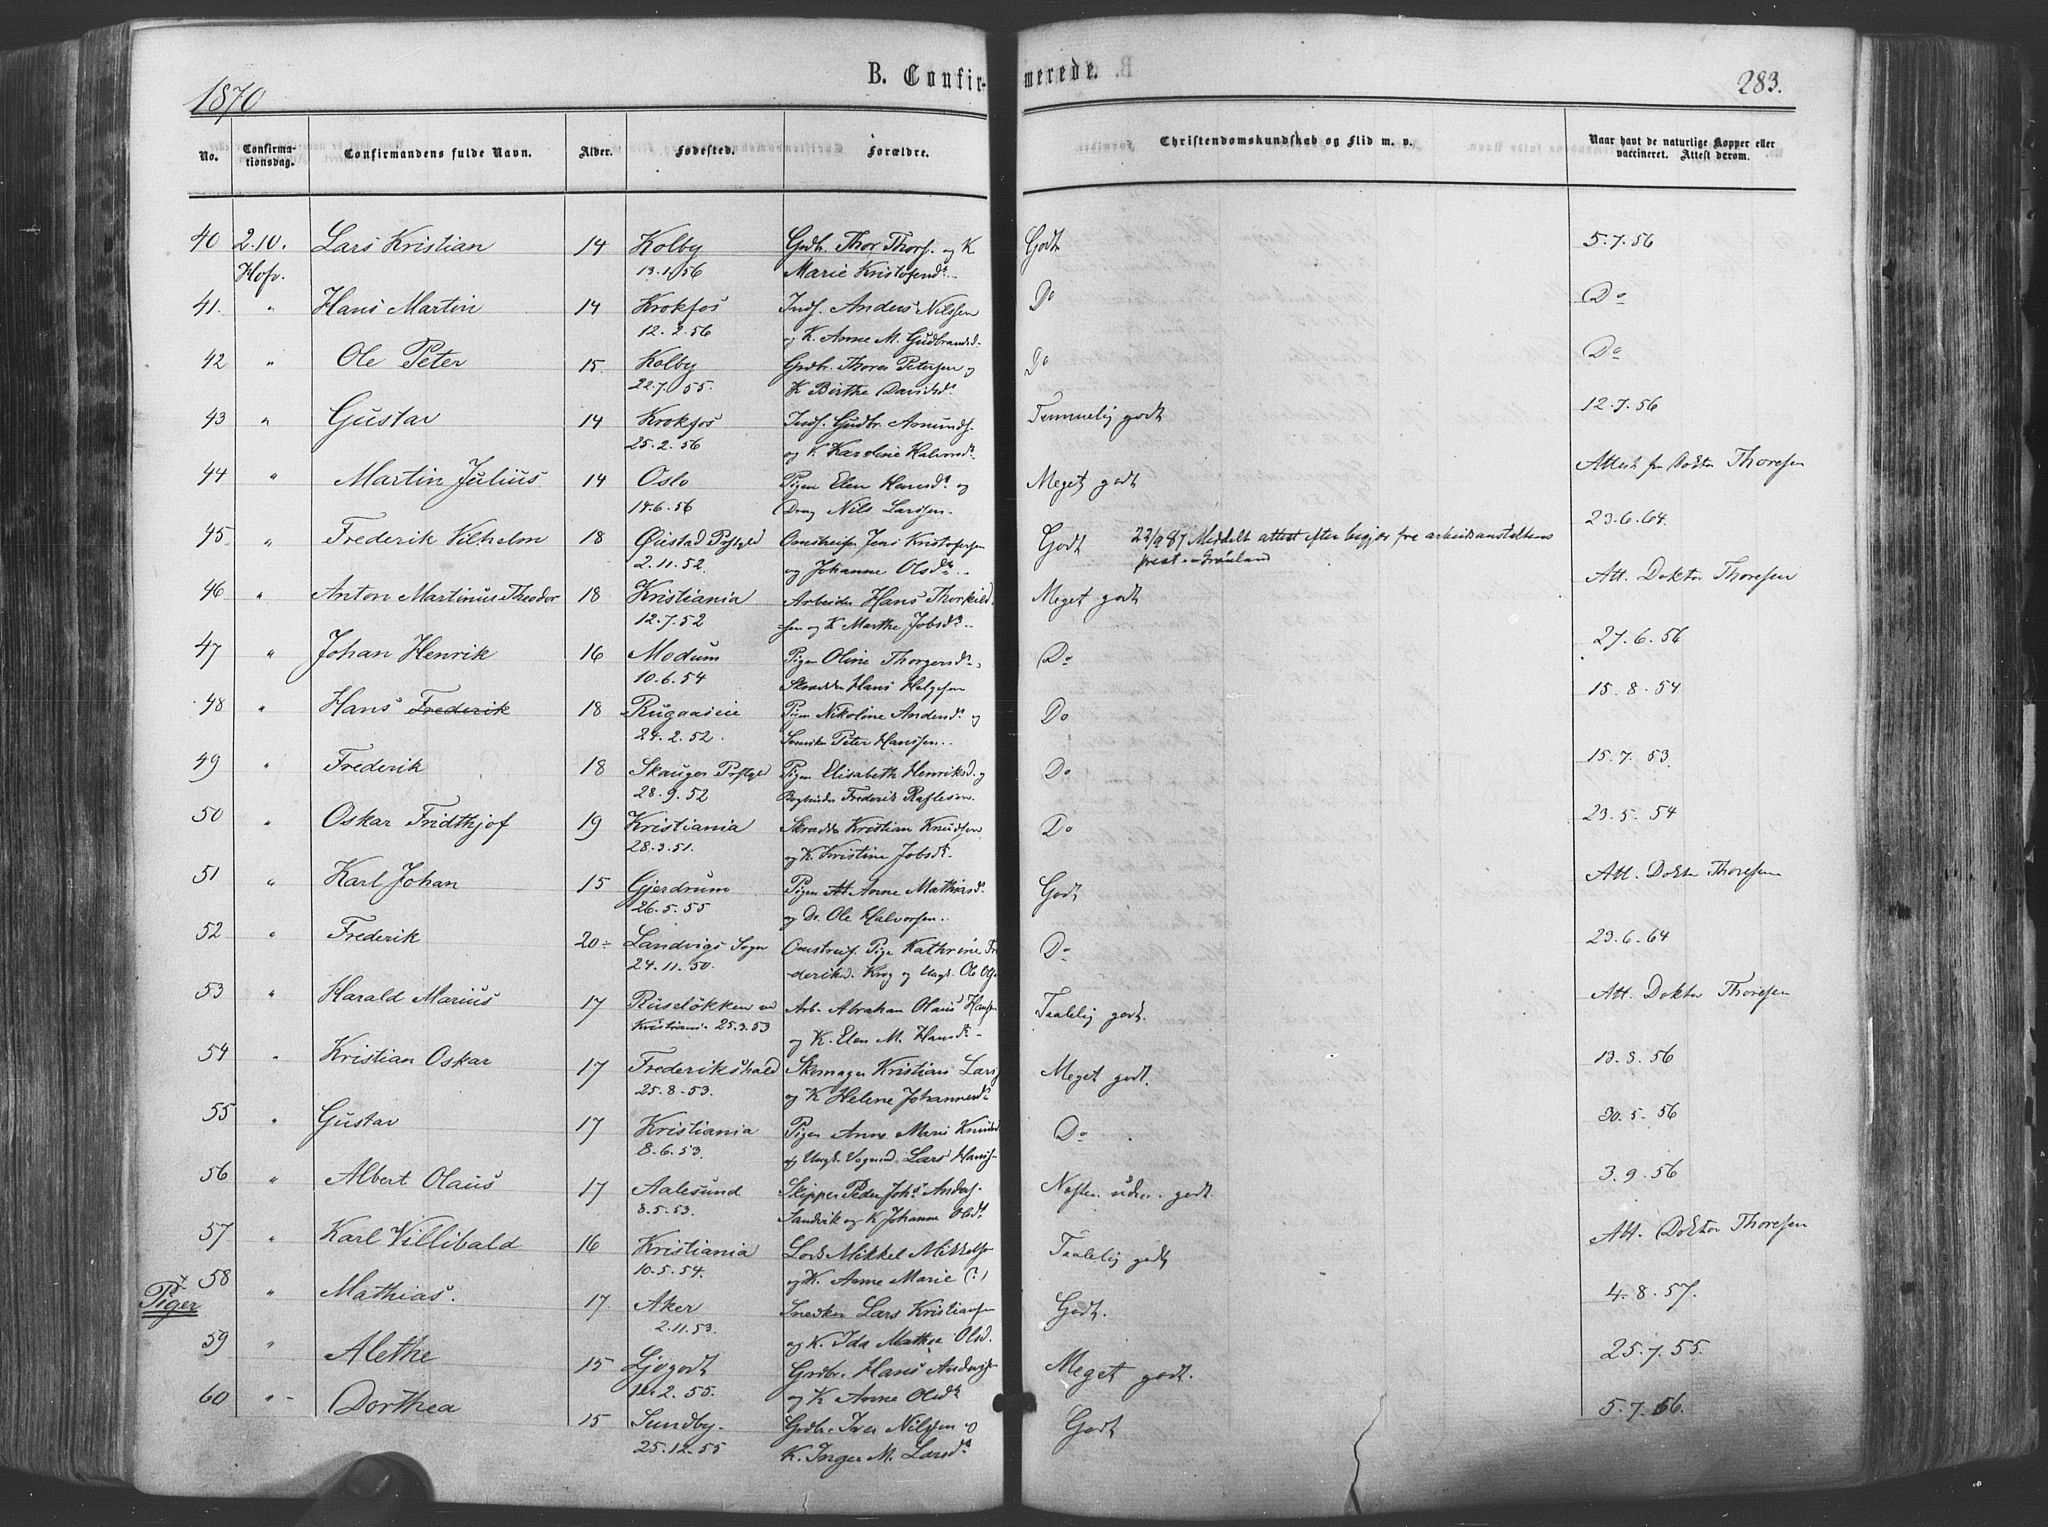 1870 B. Confirmerede. 283.
No. Confirmationsdag. Confirmandens fulde Navn. Alder. Fødested. Forældre. Christendomskundskab og Flid m. v. Naar havt de naturlige Kopper eller vaccineret. Attest derom.
40 2.10. Lars Kristian 14 Kolby Grdb. Thor Thors. og K Godt 5.7.56
Hofv. 13.1.56 Marie Kristofersd.
41. " Hans Martin 14 Krokfos Inds. Anders Nilssen Do Do
12.2.56 og K. Anne M. Gudbrandsd.
42 " Ole Peter 15. Kolby Grdb. Thorer Petersen og Do Do
22.7.55. K Birthe Davidsd.
43 " Gustav 14 Krokfos Inds. Gudbr. Amunds. Temmelig godt 12.7.56
25.2.56 og K. Karoline Halvorsd.
44 " Martin Julius 14 Oslo Pigen Elen Hansd. og Meget godt Attest fra Doktor Thoresen
14.6.56 Dreng Nils Larssen
45 " Frederik Vilhelm 18 Øiestad Prstgld Omstreifer Jens Kristofersen Godt 22/9 87 Meddelt attest efter begjær fra arbeidsanstaltens 23.6.64.
2.11.52. og Johanne Olsd. prest Grønland
46 " Anton Martinus Theodor 18 Kristiania Arbeider Hans Thorkild- Meget godt Att. Doktor Thoresen
12.7.52 sen og K Marthe Jobsd.
47 " Johan Henrik 16 Modum Pigen Oline Thorgersd. Do 27.6.56
10.6.54 Skrædder Hans Helgesen
48 " Hans Frederik 18 Rugaaseie Pigen Nikoline Andersd. og Do 15.8.54
24.2.52. Svenske Peter Hanssen
49 " Frederik 18 Skauger Prstgld Pigen Elisabeth Henriksd. og Do 15.7.53
28.9.52 Bogbinder Frederik Raflesen.
50 " Oskar Fridthjof 19 Kristiania Skrædder Kristian Knudsen Do 23.5.54
28.3.51. og K. Kristine Jobsd.
51 " Karl Johan 15 Gjerdrum Pigen Anne Mathiasd. Godt Att. Doktor Thoresen
26.5.55 og Dr. Ole Halvorsen
52 " Frederik 20 Landvigs Sogn Omstreif. Pige Kathrine Fre Do 23.6.64
24.11.50. deriksd. Krog og Ungk. Ole
53 " Harald Marius 17 Ruseløkken ved Arb. Abraham Olaus Hansen Taalelig godt. Att. Doktor Thoresen
Kristiania 25.3.53 og K. Elen M. Hansd.
54 " Kristian Oskar 17 Frederikshald Skomager Kristian Lars Meget godt. 13.3.56
25.8.53. og K Helene Johannesd.
55 " Gustav 17 Kristiania Pigen Anne Marie Knudsd Do 30.5.56
8.6.53. og Ungk. Lars Hans
56 " Albert Olaus 17 Aalesund Skipper Peder Johs Anders. Næsten udm. godt. 3.9.56
8.5.53. Sandvik og K Johanne Olsd.
57 " Karl Villibald 16 Kristiania Lods Mikkel Mikkelsen Taalelig godt Att. Doktor Thoresen
10.5.54. og K. Anne Marie (?)
58 " Mathias. 17. Aker Snedker Lars Kristiansen Godt. 4.8.57.
Piger 2.11.53. og K. Ida Mathea Olsd.
59 " Alethe 15 Ljøgodt Grdbr. Hans Anders Meget godt. 25.7.55.
12.2.55. og K Anne Olsd.
60 " Dorthea 15 Sundby Grdb. Iver Nilssen og Godt 5.7.56.
25.12.55 K. Inger M. Larsd.